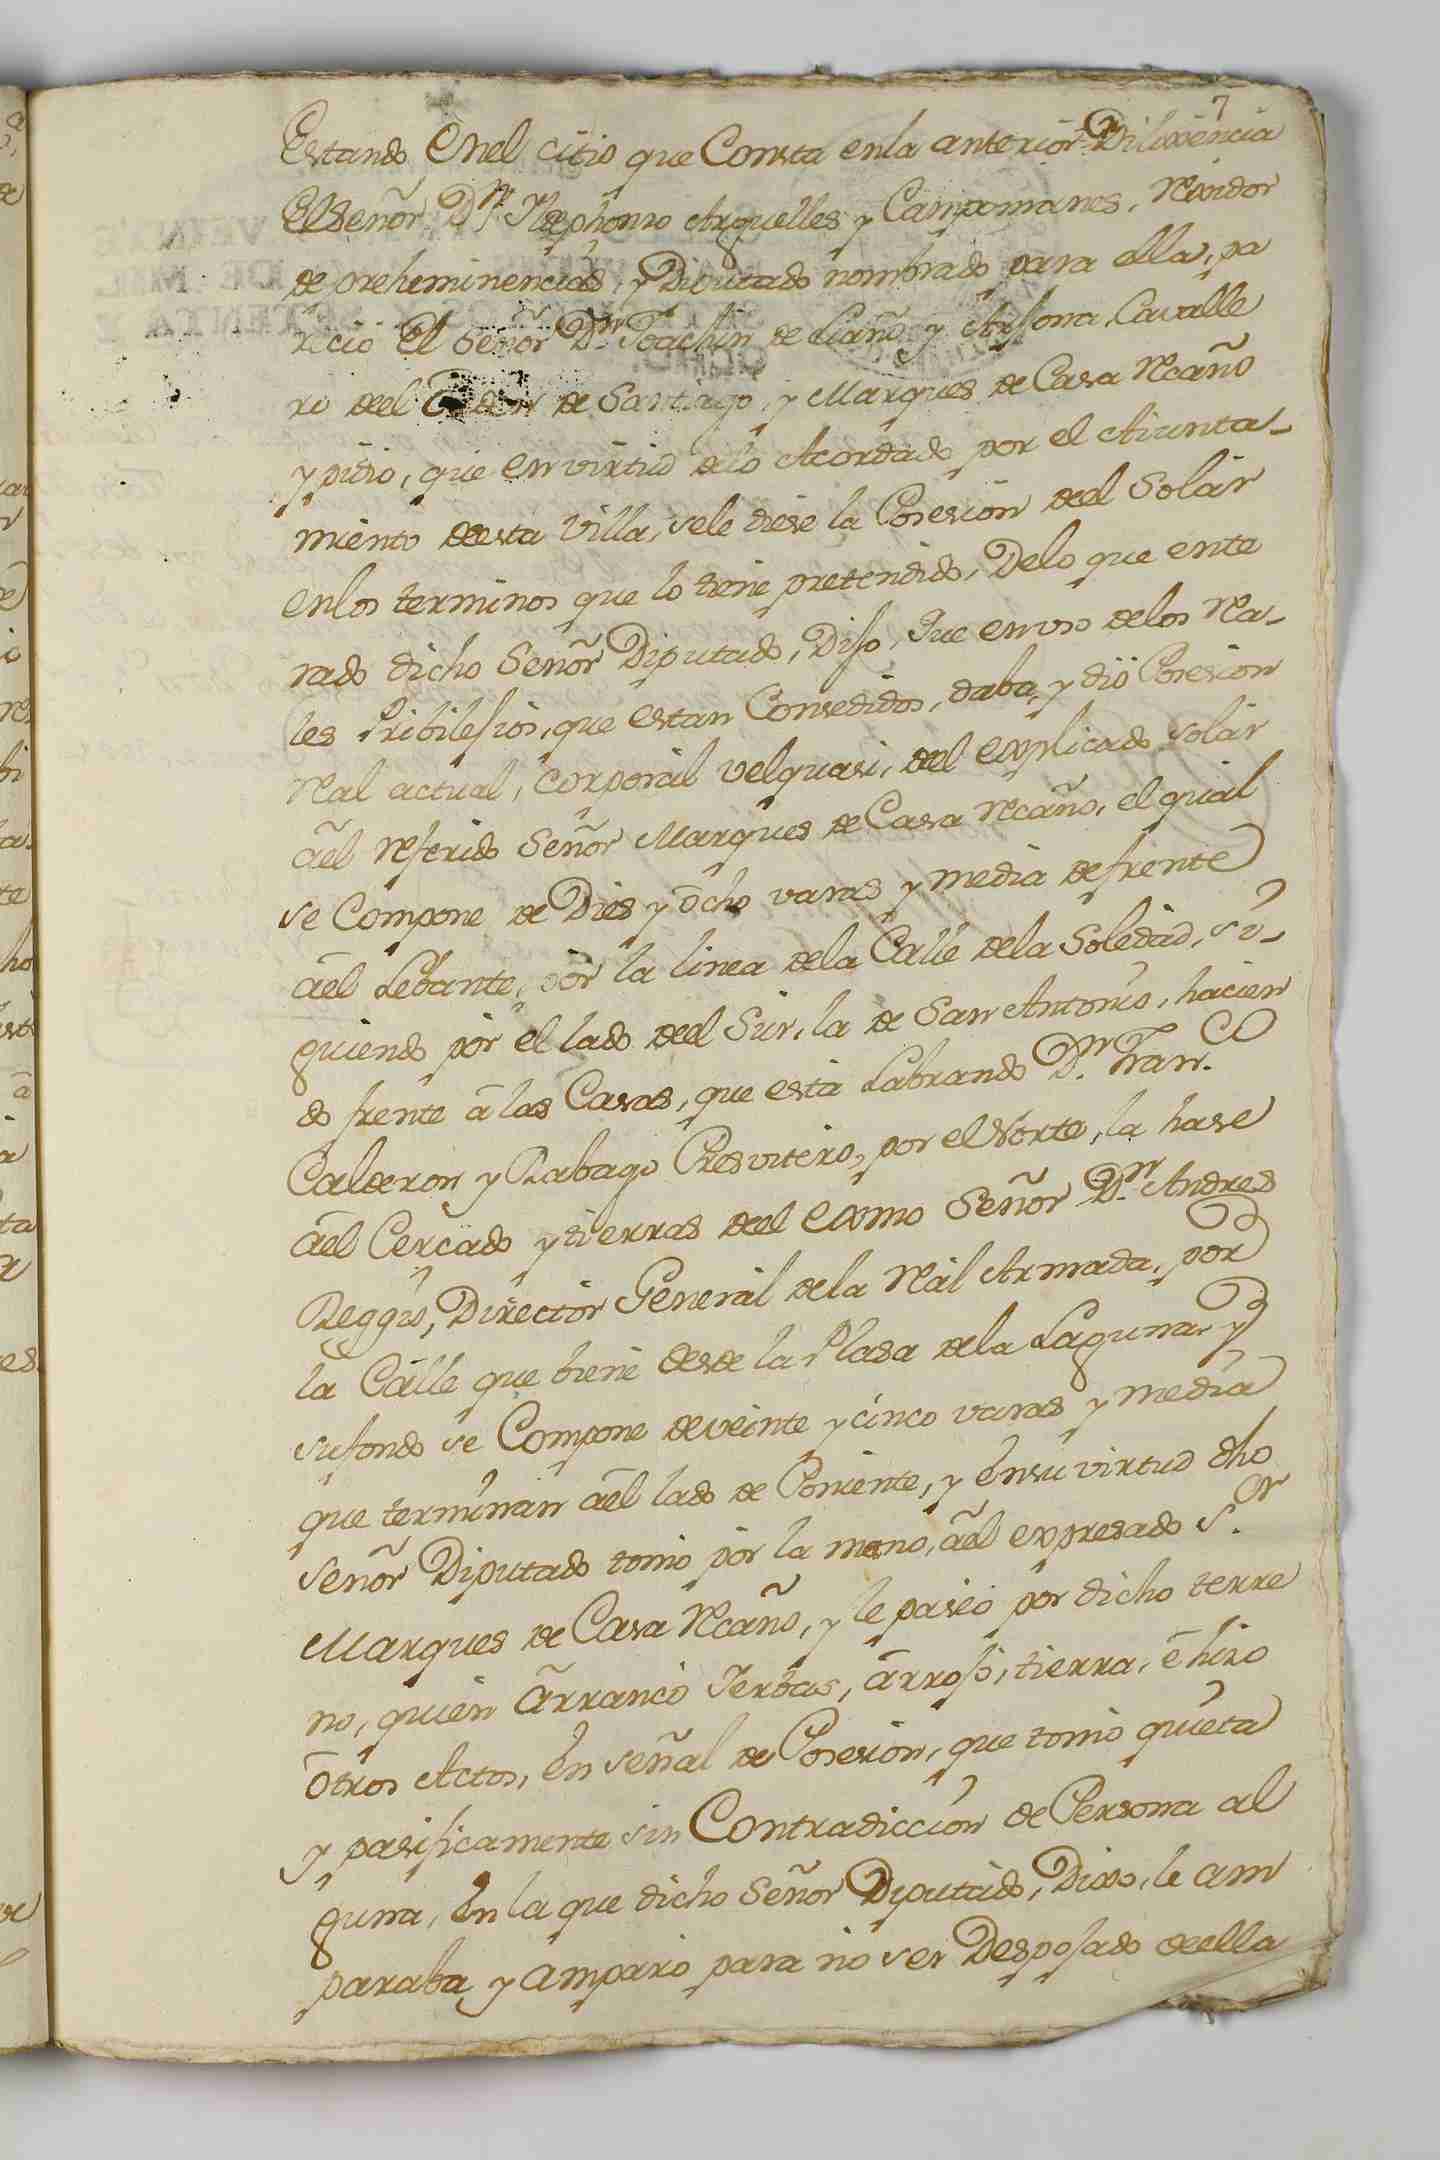 7
Estando Enel citio que Consta enla anterior Dilixencia
El Señor Dn. Ildephonso Arguelles y Campomanes, Rexidor
de preheminencias, y Diputado nombrado para ella, pa
recio El Señor Dn. Joachin de Liaño y Arjona, Cavalle
ro deel Orden de Santiago, y Marques de Casa Recaño
y pidio, que en virtud delo Acordado por el Aiunta-
miento deesta Villa, sele diese la Posesion deel Solar
enlos terminos que lo tiene pretendido, Delo que ente
rado dicho Señor Diputado, Dijo, Que en uso delos Rea-
les Pribilejios, que estan Consedidos, daba, y dió Posesion
Real actual, corporal velquasi, deel explicado solar
âel referido Señor Marques de Casa Recaño, el qual
se Compone de Dies y ôcho varas y media defrente
âel Lebante, por la linea dela Calle dela Soledad, si-
guiendo por el lado deel Sur, la de San Antonio, hacien
do frente â las Casas, que está Labrando Dn. Fran.co
Calderon y Rabago Presvitero, por el Norte, la hase
âel Cercado y tierras deel Exmo Señor Dn. Andres
Reggio, Director General dela Real Armada, por
la Calle que biene desde la Plasa dela Laguna y
su fondo se Compone deveinte y cinco varas y media
que terminan âel lado de Poniente, y Ensu virtud dho
señor Diputado tomó por la mano, âel expresado S.or
Marques de Casa Recaño, y le paseó por dicho terre
no, quien Ârrancó Yerbas, ârrojó, tierra, ê hizo
Ôtros Actos, En señal de Posesion, que tomó quieta
y pasificamente sin Contradiccion de Persona al
guna, En la que dicho Señor Diputado, Dixo, le am
paraba, y amparó para no ser Despojado deella